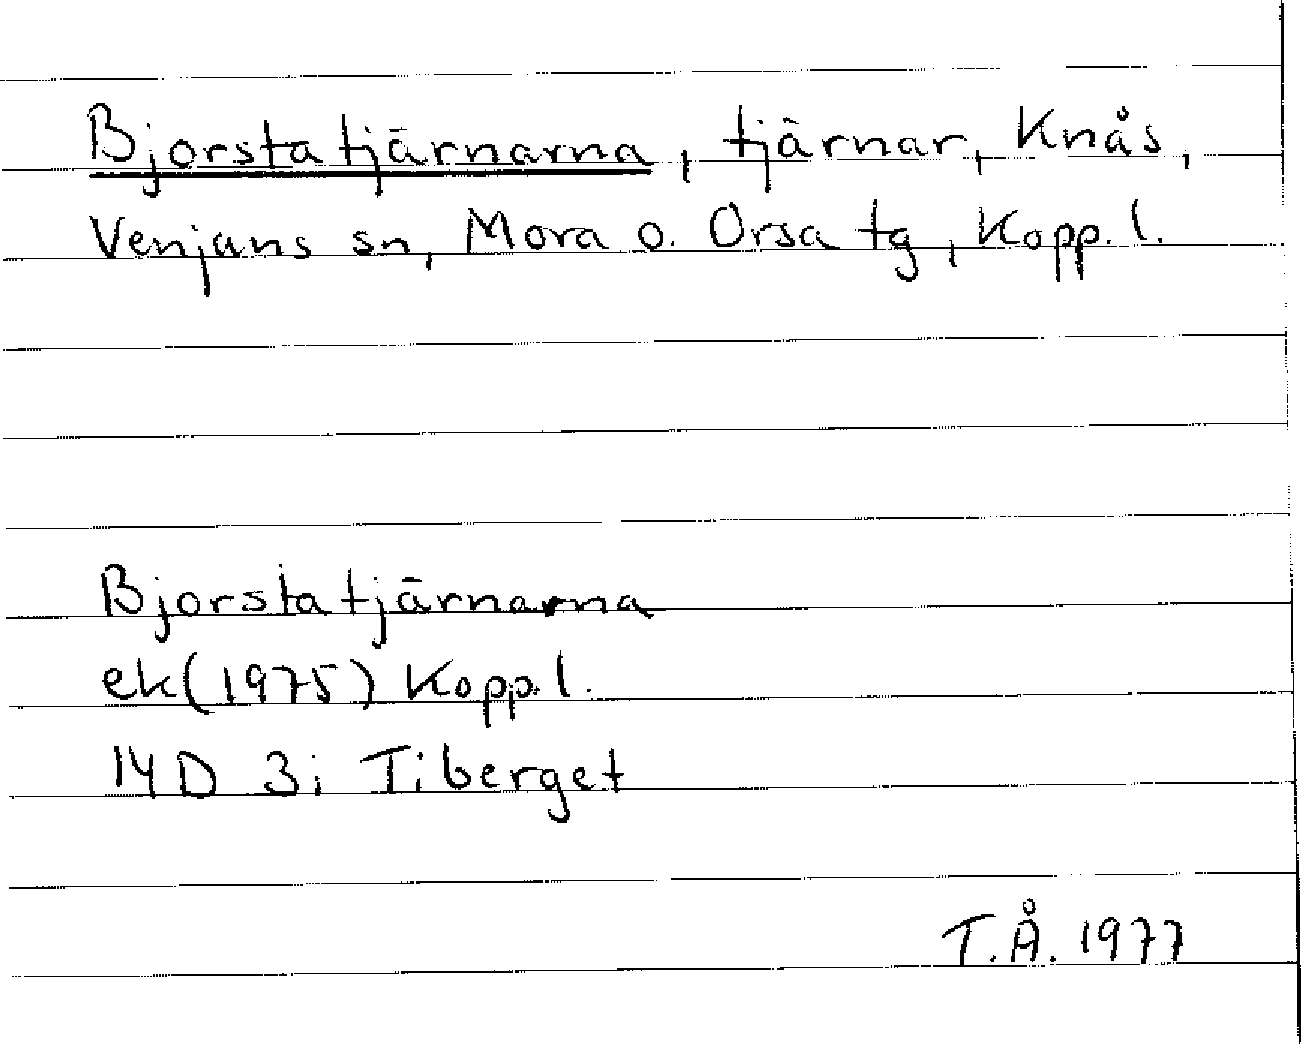 Bjorstatjärnarna, tjärnar, Knås,
Venjans sn, Mora o. Orsa tg, Kopp. l.
Bjorstatjärnarna
ek (1975) Kopp. l.
14D 3i Tiberget
T.Å. 1977